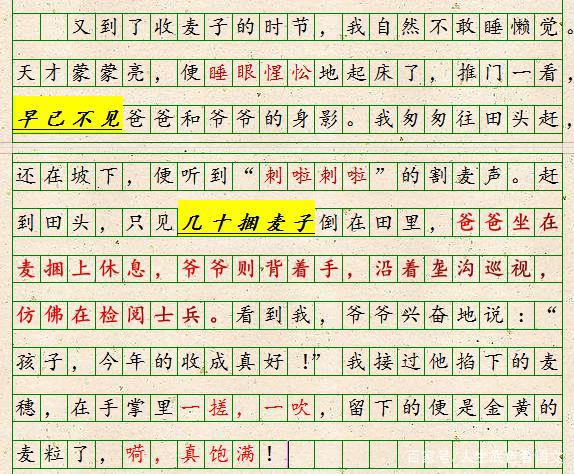 又到了收麦子的时节，我自然不敢睡懒觉。
天才蒙蒙亮，便睡眼惺忪地起床了，推门一看，
早已不见爸爸和爷爷的身影。我匆匆往田头赶，
还在坡下，便听到“刺啦刺啦”的割麦声。赶
到田头，只见几十捆麦子倒在田里，爸爸坐在
麦捆上休息，爷爷则背着手，沿着垄沟巡视，
仿佛在检阅士兵。看到我，爷爷兴奋地说：“
孩子，今年的收成真好！”我接过他掐下的麦
穗，在手掌里一搓，一吹，留下的便是金黄的
麦粒了，嗬，真饱满！